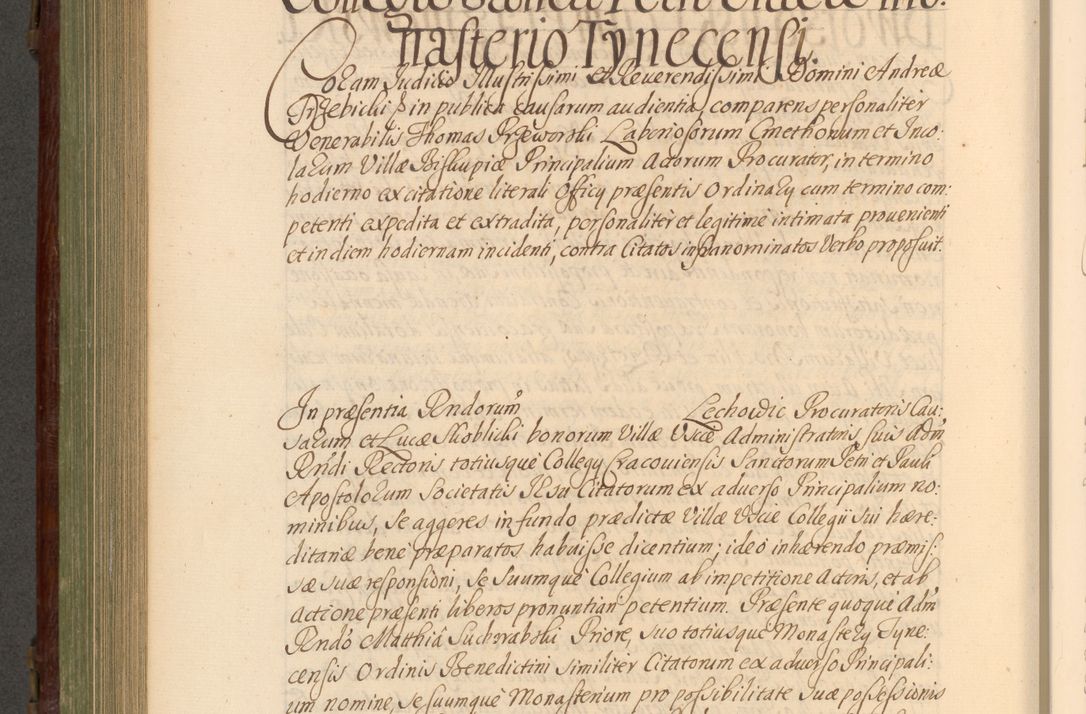 nasterio Tynecensi.
Coram Judicio Illustrissimi et Reverendissimi Domini Andreæ
Trzebicki in publica causarum audientia comparens personaliter
Venerabilis Thomas Przeworski Laboriosorum Cmethonum et Inco:
larum Villæ Biskupice Principalium Actorum Procurator, in termino
hodierno ex citatione literali Officy præsentis Ordinary cum termino com:
petenti expedita et extradita, personaliter et legitime intimata proveniente
et in diem hodiernam incidenti, contra Citatos infranominatos Verbo proposuit.
In præsentia Rndorum Lechowic Procuratoris Cau:
sarum et Lucæ Skoblicki bonorum Villæ Uście Administratoris suis Adm
Rndi Rectoris totiusque Collegy Cracoviensis Sanctorum Petri et Pauli
Apostolorum Societatis Jesu Citatorum ex adverso Principalium no:
minibus, se aggeres in fundo prædictæ Villæ Uscie Collegii sui hære:
ditariæ bene præparatos habuisse dicentium; ideo inhærendo præmis:
sæ suæ responsioni, se suumque Collegium ab impetitione Actoris, et ab
actione præsenti liberos pronuntiari petentium. Præsente quoque Adm
Rndo Matthia Suchorabski Priore, suo totiusque Monastery Tyne:
censis Ordinis Benedictini similiter Citatorum ex adverso Principali:
um nomine, se suumque Monasterium pro possibilitate suæ possessionis